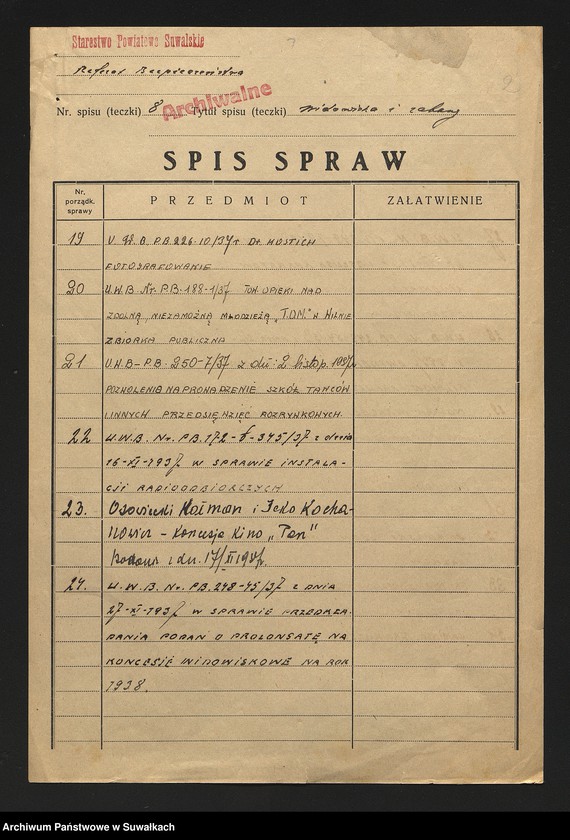 Starostwo Powiatowe Suwalskie
Referat Bezpieczeństwa
Nr. spisu (teczki) 8 Tytuł spisu (teczki) widowiska i zabawy
Archiwalne
SPIS SPRAW
Nr. porządk. sprawy
PRZEDMIOT
ZAŁATWIENIE
19 U.W.B. P.B. 226-10/37 r. Dr. HOSTICH
FOTOGRAFOWANIE
20 U.W.B. Nr. P.B. 188-1/37 TOW. OPIEKI NAD
ZDOLNĄ NIEZAMOŻNĄ MŁODZIEŻĄ „T.O.M." W WILNIE
ZBIÓRKA PUBLICZNA
21 U.W.B - P.B. 250-7/37 z dn. 2 listop. 1937 r.
POZWOLENIE NA PROWADZENIE SZKÓŁ TAŃCÓW
I INNYCH PRZEDSIĘWZIĘĆ ROZRYWKOWYCH.
22 U.W.B. Nr. P.B. 172-6-345/37 z dnia
16-XI-1937 W SPRAWIE INSTALA-
CJI RADIOODBIORCZYCH
23. Osowicki Kałman i Icko Kocha-
nowicz - Koncesja Kino „Pan"
Podanie z dn. 17/XI 1937 r.
24. U.W.B. Nr. P.B. 248-45/37 Z DNIA
27-XI-1937 W SPRAWIE PRZEDKŁA-
DANIA PODAŃ O PROLONGATĘ NA
KONCESJE WIDOWISKOWE NA ROK
1938.
Archiwum Państwowe w Suwałkach